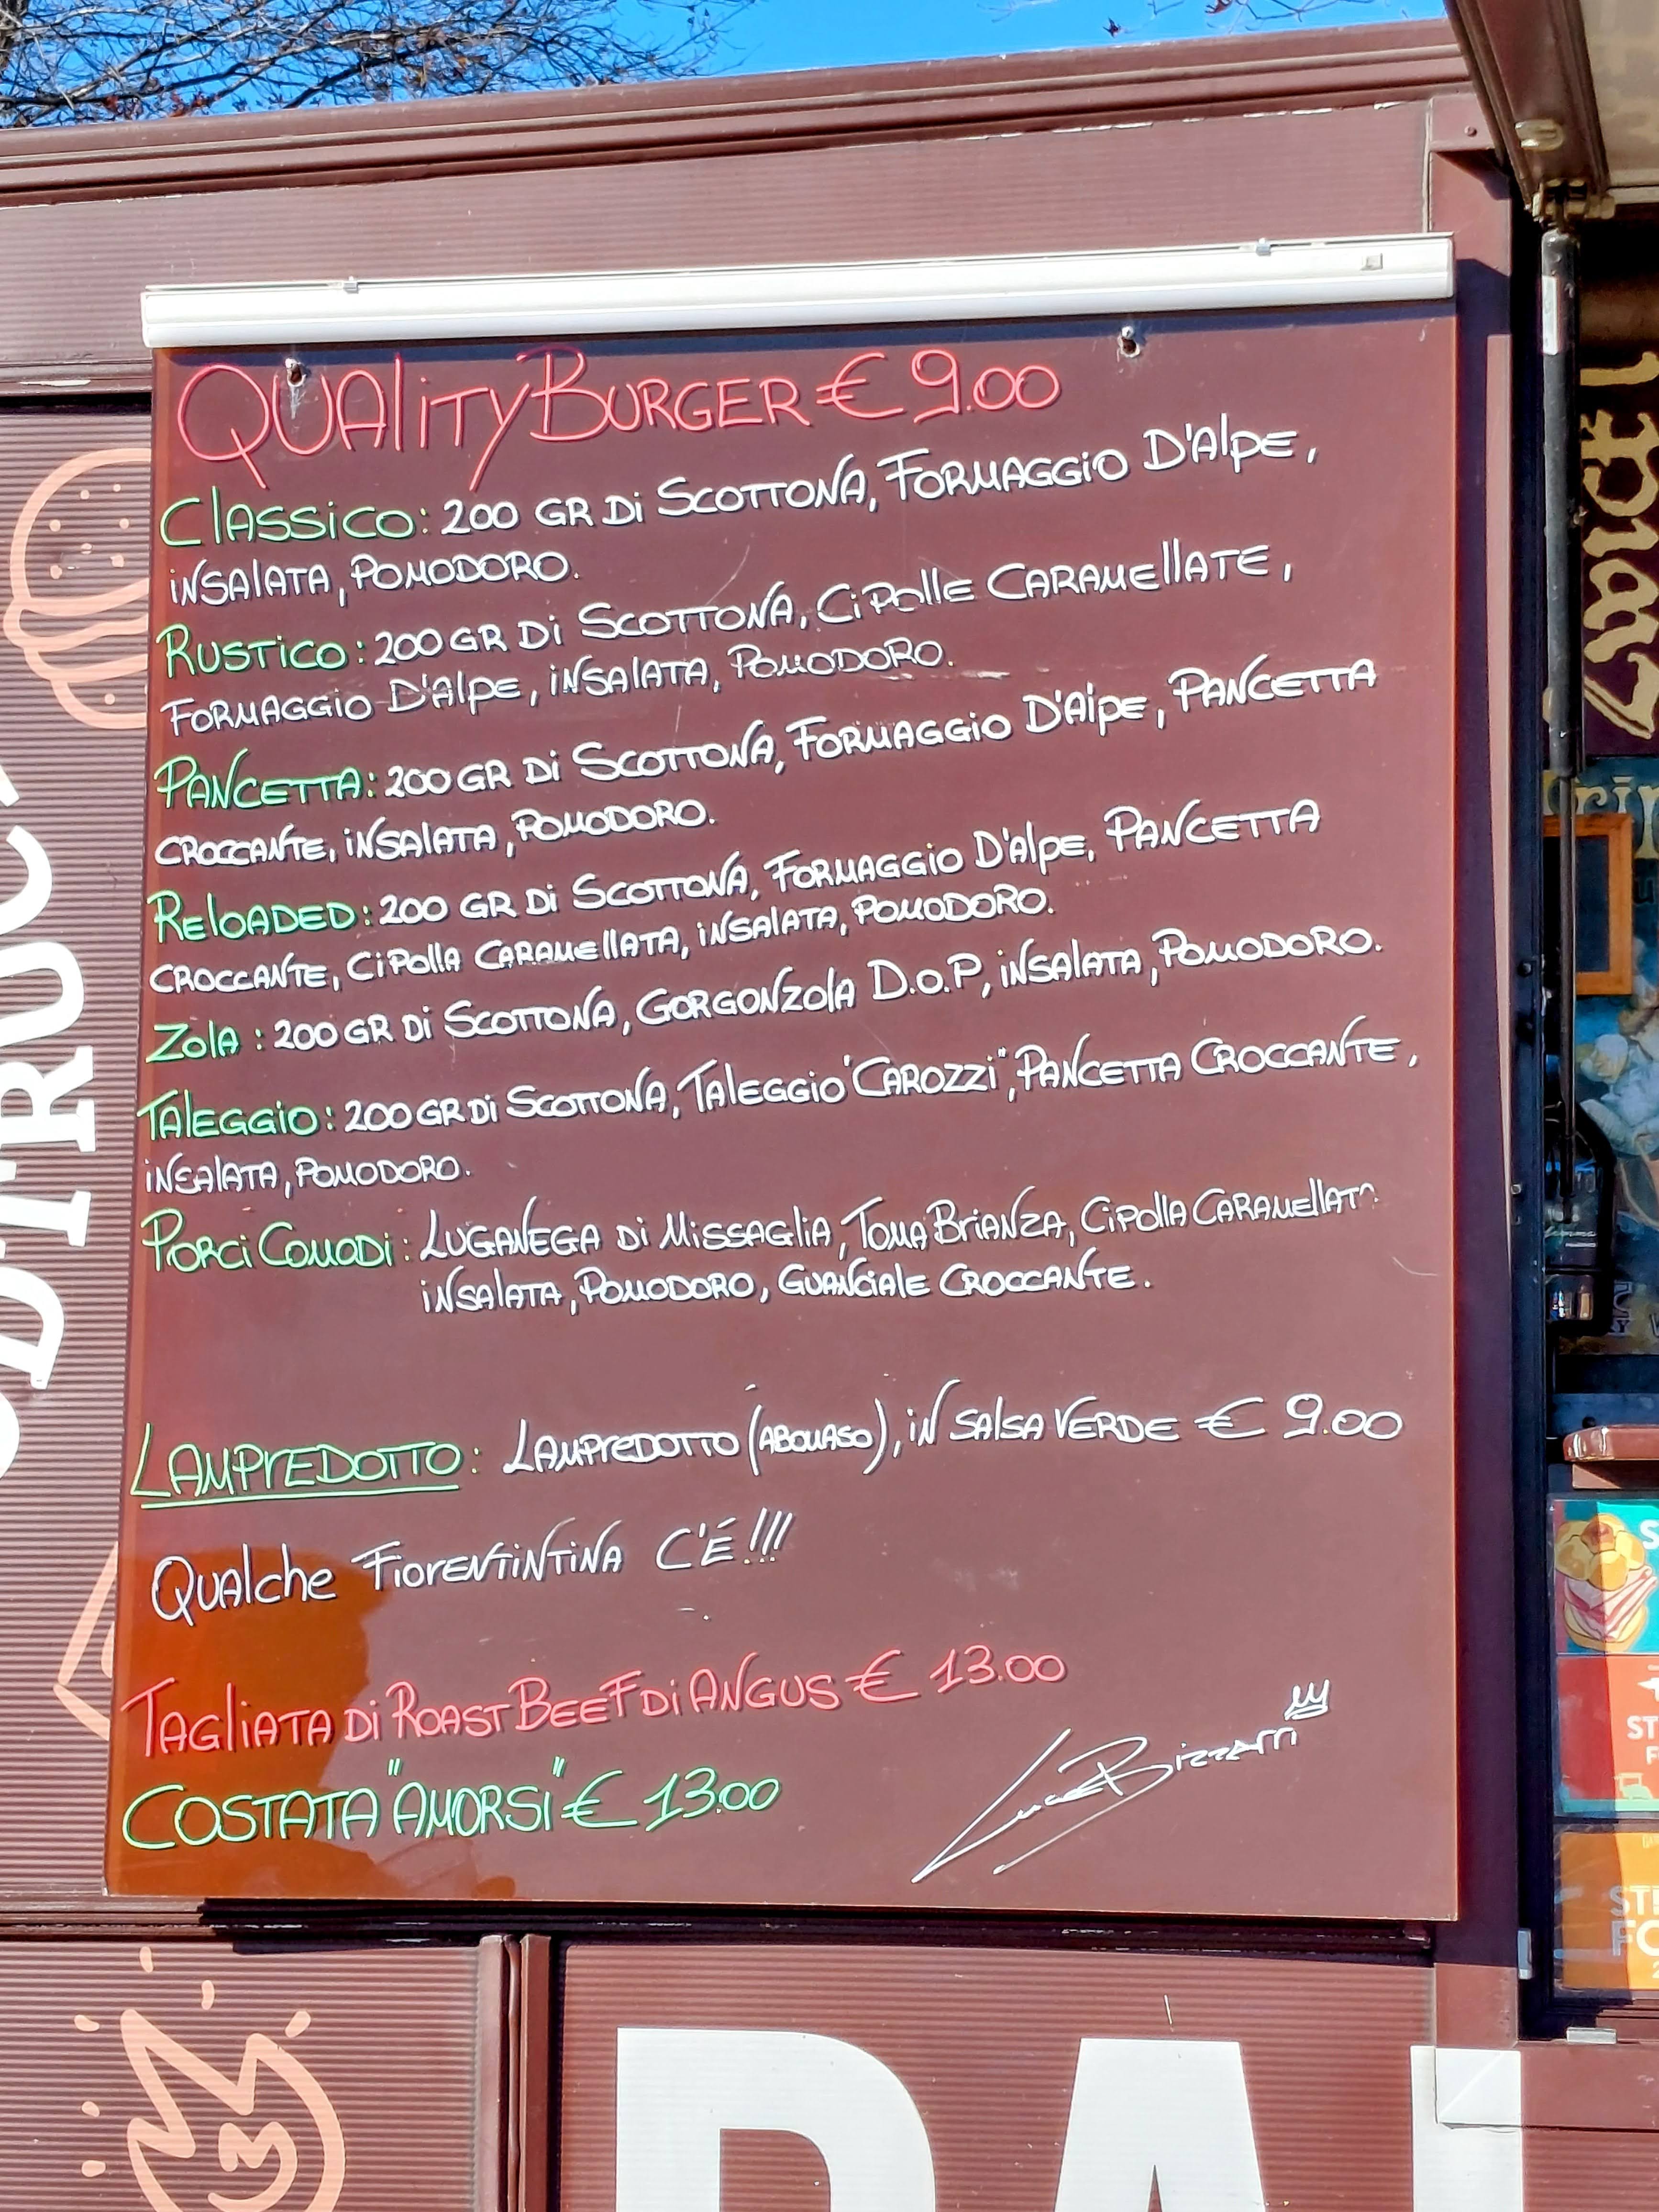 QUALITY BURGER € 9.00
CLASSICO: 200 GR DI SCOTTONA, FORMAGGIO D'ALPE,
INSALATA, POMODORO.
RUSTICO: 200 GR DI SCOTTONA, CIPOLLE CARAMELLATE,
FORMAGGIO D'ALPE, INSALATA, POMODORO.
PANCETTA: 200 GR DI SCOTTONA, FORMAGGIO D'ALPE, PANCETTA
CROCCANTE, INSALATA, POMODORO.
RELOADED: 200 GR DI SCOTTONA, FORMAGGIO D'ALPE, PANCETTA
CROCCANTE, CIPOLLA CARAMELLATA, INSALATA, POMODORO.
ZOLA: 200 GR DI SCOTTONA, GORGONZOLA D.O.P, INSALATA, POMODORO.
TALEGGIO: 200 GR DI SCOTTONA, TALEGGIO "CAROZZI", PANCETTA CROCCANTE,
INSALATA, POMODORO.
PORCI COMODI: LUGANEGA DI MISSAGLIA, TOMA BRIANZA, CIPOLLA CARAMELLATA
INSALATA, POMODORO, GUANCIALE CROCCANTE.
LAMPREDOTTO: LAMPREDOTTO (ABOMASO), IN SALSA VERDE € 9.00
QUALCHE FIORENTINTINA C'É!!!
TAGLIATA DI ROAST BEEF DI ANGUS € 13.00
COSTATA "AMORSI" € 13.00
Luca Bizzarri